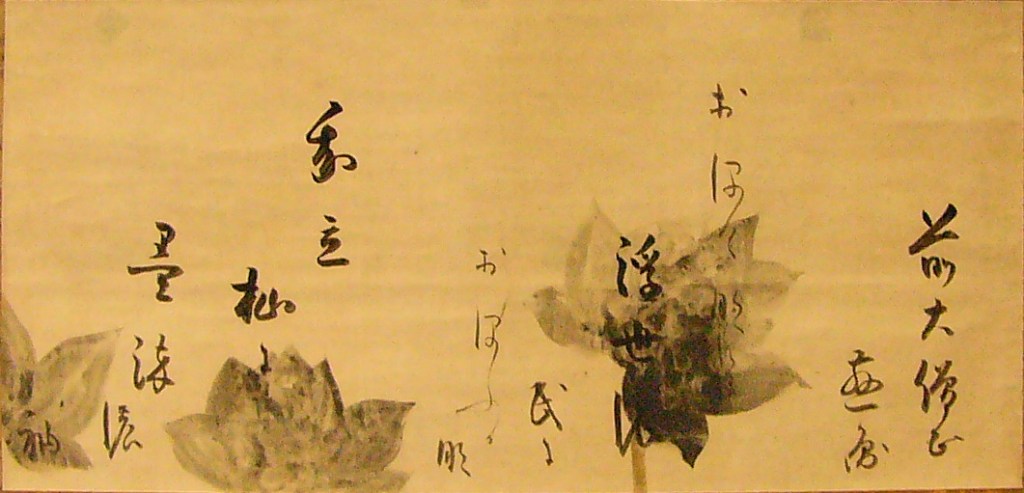 前大僧正
慈圓
おほけ那く
浮世濃
民に
おほふか
那
我立
杣に
墨染
濃
袖